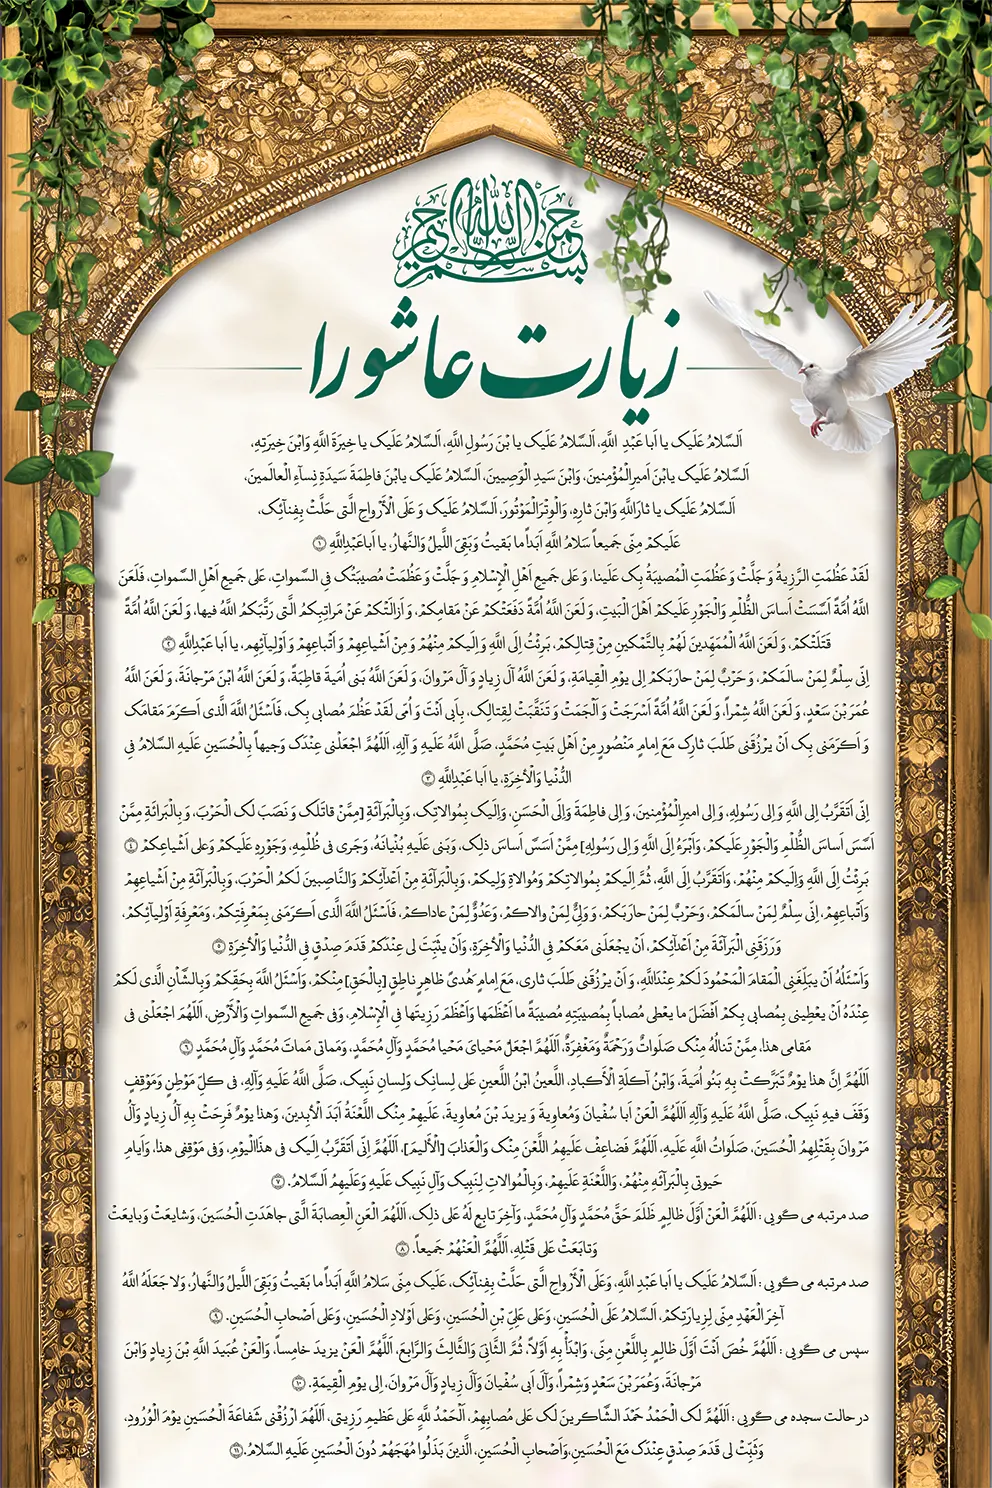 بسم الله الرحمن الرحیم
زیارت عاشورا
اَلسَّلامُ عَلَیکَ یا اَبا عَبْدِ اللَّهِ، اَلسَّلامُ عَلَیکَ یا بْنَ رَسُولِ اللَّهِ، اَلسَّلامُ عَلَیکَ یا خِیرَةَ اللَّهِ وَابْنَ خِیرَتِهِ،
اَلسَّلامُ عَلَیکَ یابْنَ اَمیرِالْمُؤْمِنینَ، وَابْنَ سَیدِ الْوَصِیینَ، اَلسَّلامُ عَلَیکَ یابْنَ فاطِمَةَ سَیدَةِ نِساَّءِ الْعالَمینَ،
اَلسَّلامُ عَلَیکَ یا ثارَاللَّهِ وَابْنَ ثارِهِ، وَالْوِتْرَالْمَوْتُورَ، اَلسَّلامُ عَلَیکَ وَ عَلَی الْأَرْواحِ الَّتی حَلَّتْ بِفِنآئِکَ،
عَلَیکُمْ مِنّی جَمیعاً سَلامُ اللَّهِ اَبَداً ما بَقیتُ وَ بَقِیَ اللَّیلُ وَالنَّهارُ، یا اَباعَبْدِاللَّهِ ۱
لَقَدْ عَظُمَتِ الرَّزِیةُ وَ جَلَّتْ وَ عَظُمَتِ الْمُصیبَةُ بِکَ عَلَینا، وَ عَلی جَمیعِ اَهْلِ الْاِسْلامِ وَ جَلَّتْ وَ عَظُمَتْ مُصیبَتُکَ فِی السَّمواتِ، عَلی جَمیعِ اَهْلِ السَّمواتِ، فَلَعَنَ
اللَّهُ اُمَّةً اَسَّسَتْ اَساسَ الظُّلْمِ وَالْجَوْرِ عَلَیکُمْ اَهْلَ الْبَیتِ، وَ لَعَنَ اللَّهُ اُمَّةً دَفَعَتْکُمْ عَنْ مَقامِکُمْ، وَ اَزالَتْکُمْ عَنْ مَراتِبِکُمُ الَّتی رَتَّبَکُمُ اللَّهُ فیها، وَ لَعَنَ اللَّهُ اُمَّةً
قَتَلَتْکُمْ، وَ لَعَنَ اللَّهُ الْمُمَهِّدینَ لَهُمْ بِالتَّمْکینِ مِنْ قِتالِکُمْ، بَرِئْتُ اِلَی اللَّهِ وَ اِلَیکُمْ مِنْهُمْ وَ مِنْ اَشْیاعِهِمْ وَ اَتْباعِهِمْ وَ اَوْلِیآئِهِم، یا اَبا عَبْدِاللَّهِ ۲
اِنّی سِلْمٌ لِمَنْ سالَمَکُمْ، وَ حَرْبٌ لِمَنْ حارَبَکُمْ اِلی یوْمِ الْقِیامَةِ، وَ لَعَنَ اللَّهُ آلَ زِیادٍ وَ آلَ مَرْوانَ، وَ لَعَنَ اللَّهُ بَنی اُمَیةَ قاطِبَةً، وَ لَعَنَ اللَّهُ ابْنَ مَرْجانَةَ، وَ لَعَنَ اللَّهُ
عُمَرَ بْنَ سَعْدٍ، وَ لَعَنَ اللَّهُ شِمْراً، وَ لَعَنَ اللَّهُ اُمَّةً اَسْرَجَتْ وَ اَلْجَمَتْ وَ تَنَقَّبَتْ لِقِتالِکَ، بِاَبی اَنْتَ وَ اُمّی لَقَدْ عَظُمَ مُصابی بِکَ، فَاَسْئَلُ اللَّهَ الَّذی اَکْرَمَ مَقامَکَ
وَ اَکْرَمَنی بِکَ اَنْ یرْزُقَنی طَلَبَ ثارِکَ مَعَ اِمامٍ مَنْصُورٍ مِنْ اَهْلِ بَیتِ مُحَمَّدٍ، صَلَّی اللَّهُ عَلَیهِ وَ آلِهِ، اَللّهُمَّ اجْعَلْنی عِنْدَکَ وَجیهاً بِالْحُسَینِ عَلَیهِ السَّلامُ فِی
الدُّنْیا وَالْآخِرَةِ، یا اَبا عَبْدِاللَّهِ ۳
اِنّی اَتَقَرَّبُ اِلی اللَّهِ وَ اِلی رَسُولِهِ، وَ اِلی امیرِالْمُؤْمِنینَ، وَ اِلی فاطِمَةَ وَ اِلَی الْحَسَنِ، وَ اِلَیکَ بِمُوالاتِکَ، وَ بِالْبَرآئَةِ [مِمَّنْ قاتَلَکَ وَ نَصَبَ لَکَ الْحَرْبَ، وَ بِالْبَرائَةِ مِمَّنْ
اَسَّسَ اَساسَ الظُّلْمِ وَالْجَوْرِ عَلَیکُمْ، وَ اَبْرَءُ اِلَی اللَّهِ وَ اِلی رَسُولِهِ] مِمَّنْ اَسَسَّ اَساسَ ذلِکَ، وَ بَنی عَلَیهِ بُنْیانَهُ، وَ جَری فی ظُلْمِهِ، وَ جَوْرِهِ عَلَیکُمْ وَ عَلی اَشْیاعِکُمْ ۴
بَرِئْتُ اِلَی اللَّهِ وَ اِلَیکُمْ مِنْهُمْ، وَ اَتَقَرَّبُ اِلَی اللَّهِ، ثُمَّ اِلَیکُمْ بِمُوالاتِکُمْ وَ مُوالاةِ وَلِیکُمْ، وَ بِالْبَرآئَةِ مِنْ اَعْدآئِکُمْ وَ النَّاصِبینَ لَکُمُ الْحَرْبَ، وَ بِالْبَرآئَةِ مِنْ اَشْیاعِهِمْ
وَ اَتْباعِهِمْ، اِنّی سِلْمٌ لِمَنْ سالَمَکُمْ، وَ حَرْبٌ لِمَنْ حارَبَکُمْ، وَ وَلِیٌّ لِمَنْ والاکُمْ، وَ عَدُوٌّ لِمَنْ عاداکُمْ، فَاَسْئَلُ اللَّهَ الَّذی اَکْرَمَنی بِمَعْرِفَتِکُمْ، وَ مَعْرِفَةِ اَوْلِیآئِکُمْ،
وَ رَزَقَنِی الْبَرآئَةَ مِنْ اَعْدآئِکُمْ، اَنْ یجْعَلَنی مَعَکُمْ فِی الدُّنْیا وَالْآخِرَةِ، وَ اَنْ یثَبِّتَ لی عِنْدَکُمْ قَدَمَ صِدْقٍ فِی الدُّنْیا وَالْآخِرَةِ ۵
وَ اَسْئَلُهُ اَنْ یبَلِّغَنِی الْمَقامَ الْمَحْمُودَ لَکُمْ عِنْدَاللَّهِ، وَ اَنْ یرْزُقَنی طَلَبَ ثاری، مَعَ اِمامٍ هُدیً ظاهِرٍ ناطِقٍ [بِالْحَقِّ] مِنْکُمْ، وَ اَسْئَلُ اللَّهَ بِحَقِّکُمْ وَ بِالشَّاْنِ الَّذی لَکُمْ
عِنْدَهُ اَنْ یعْطِینی بِمُصابی بِکُمْ اَفْضَلَ ما یعْطی مُصاباً بِمُصیبَتِهِ مُصیبَةً ما اَعْظَمَها وَ اَعْظَمَ رَزِیتَها فِی الْاِسْلامِ، وَ فی جَمیعِ السَّمواتِ وَالْأَرْضِ، اَللّهُمَّ اجْعَلْنی فی
مَقامی هذا، مِمَّنْ تَنالُهُ مِنْکَ صَلَواتٌ وَ رَحْمَةٌ وَ مَغْفِرَةٌ، اَللّهُمَّ اجْعَلْ مَحْیایَ مَحْیا مُحَمَّدٍ وَ آلِ مُحَمَّدٍ، وَ مَماتی مَماتَ مُحَمَّدٍ وَ آلِ مُحَمَّدٍ ۶
اَللّهُمَّ اِنَّ هذا یوْمٌ تَبَرَّکَتْ بِهِ بَنُو اُمَیةَ، وَ ابْنُ آکِلَةِ الْأَکبادِ، اللَّعینُ ابْنُ اللَّعینِ عَلی لِسانِکَ وَ لِسانِ نَبِیکَ، صَلَّی اللَّهُ عَلَیهِ وَ آلِهِ، فی کُلِّ مَوْطِنٍ وَ مَوْقِفٍ
وَقَفَ فیهِ نَبِیکَ، صَلَّی اللَّهُ عَلَیهِ وَ آلِهِ اَللّهُمَّ الْعَنْ اَبا سُفْیانَ وَ مُعاوِیةَ وَ یزیدَ بْنَ مُعاوِیةَ، عَلَیهِمْ مِنْکَ اللَّعْنَةُ اَبَدَ الْأبِدینَ، وَ هذا یوْمٌ فَرِحَتْ بِهِ آلُ زِیادٍ وَ آلُ
مَرْوانَ بِقَتْلِهِمُ الْحُسَینَ، صَلَواتُ اللَّهِ عَلَیهِ، اَللّهُمَّ فَضاعِفْ عَلَیهِمُ اللَّعْنَ مِنْکَ وَ الْعَذابَ [الْأَلیمَ]، اَللّهُمَّ اِنّی اَتَقَرَّبُ اِلَیکَ فی هذَاالْیوْمِ، وَ فی مَوْقِفی هذا، وَ اَیامِ
حَیوتی بِالْبَرآئَهِ مِنْهُمْ، وَاللَّعْنَةِ عَلَیهِمْ، وَ بِالْمُوالاتِ لِنَبِیکَ وَ آلِ نَبِیکَ عَلَیهِ وَ عَلَیهِمُ اَلسَّلامُ. ۷
صد مرتبه می گویی : اَللّهُمَّ الْعَنْ اَوَّلَ ظالِمٍ ظَلَمَ حَقَّ مُحَمَّدٍ وَ آلِ مُحَمَّدٍ، وَ آخِرَ تابِعٍ لَهُ عَلی ذلِکَ، اَللّهُمَّ الْعَنِ الْعِصابَةَ الَّتی جاهَدَتِ الْحُسَینَ، وَ شایعَتْ وَ بایعَتْ
وَ تابَعَتْ عَلی قَتْلِهِ، اَللّهُمَّ الْعَنْهُمْ جَمیعاً. ۸
صد مرتبه می گویی : اَلسَّلامُ عَلَیکَ یا اَبا عَبْدِ اللَّهِ، وَ عَلَی الْأَرْواحِ الَّتی حَلَّتْ بِفِنآئِکَ، عَلَیکَ مِنّی سَلامُ اللَّهِ اَبَداً ما بَقیتُ وَ بَقِیَ اللَّیلُ وَالنَّهارُ، وَ لا جَعَلَهُ اللَّهُ
آخِرَ الْعَهْدِ مِنّی لِزِیارَتِکُمْ، اَلسَّلامُ عَلَی الْحُسَینِ، وَ عَلی عَلِیِّ بْنِ الْحُسَینِ، وَ عَلی اَوْلادِ الْحُسَینِ، وَ عَلی اَصْحابِ الْحُسَینِ. ۹
سپس می گویی : اَللّهُمَّ خُصَّ اَنْتَ اَوَّلَ ظالِمٍ بِاللَّعْنِ مِنّی، وَابْدَأْ بِهِ اَوَّلاً، ثُمَّ الثَّانِیَ وَالثَّالِثَ وَالرَّابِعَ، اَللّهُمَّ الْعَنْ یزیدَ خامِساً، وَالْعَنْ عُبَیدَ اللَّهِ بْنَ زِیادٍ وَ ابْنَ
مَرْجانَةَ، وَ عُمَرَ بْنَ سَعْدٍ وَ شِمْراً، وَ آلَ اَبی سُفْیانَ وَ آلَ زِیادٍ وَ آلَ مَرْوانَ، اِلی یوْمِ الْقِیمَةِ. ۱۰
در حالت سجده می گویی : اَللّهُمَّ لَکَ الْحَمْدُ حَمْدَ الشَّاکِرینَ لَکَ عَلی مُصابِهِمْ، اَلْحَمْدُ لِلَّهِ عَلی عَظیمِ رَزِیتی، اَللّهُمَّ ارْزُقْنی شَفاعَةَ الْحُسَینِ یوْمَ الْوُرُودِ،
وَ ثَبِّتْ لی قَدَمَ صِدْقٍ عِنْدَکَ مَعَ الْحُسَینِ، وَ اَصْحابِ الْحُسَینِ، الَّذینَ بَذَلُوا مُهَجَهُمْ دُونَ الْحُسَینِ عَلَیهِ السَّلامُ. ۱۱